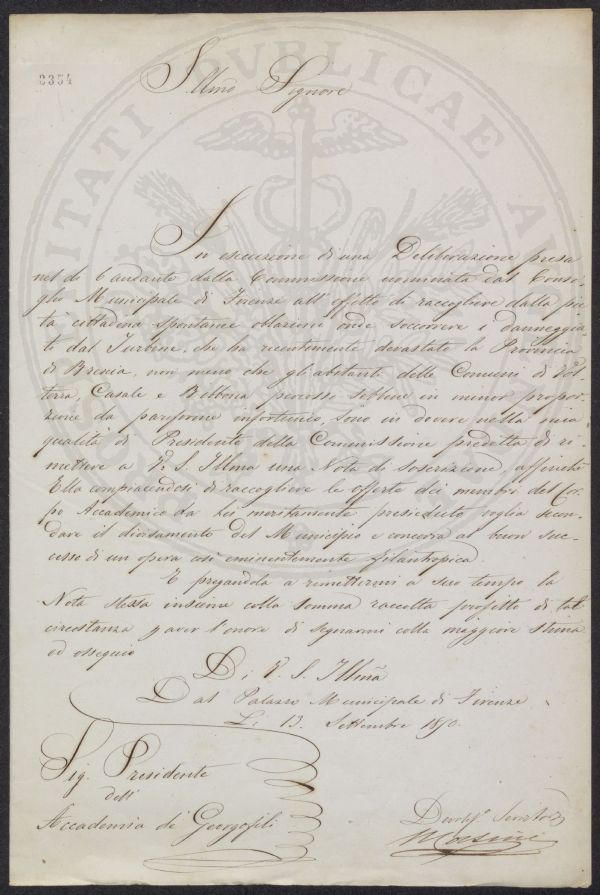 2354
Illmo Signore
In esecuzione di una Deliberazione presa
nel dì 6 andante dalla Commissione nominata dal Consi-
glio Municipale di Firenze all'effetto di raccogliere dalla pie-
tà cittadina spontanee oblazioni onde soccorrere i danneggia-
ti dal Turbine, che ha recentemente devastato la Provincia
di Brescia, non meno che gli abitanti delle Comuni di Vol-
terra, Casale e Bibbona percosse sebbene in minor propor-
zione da pariforme infortunio, sono in dovere nella mia
qualità di Presidente della Commissione predetta di ri-
mettere a V. S. Illma una Nota di soscrizione, affinchè
Ella compiacendosi di raccogliere le offerte dei membri del Cor-
po Accademico da Lei meritamente presieduto voglia secon-
dare il divisamento del Municipio e concorra al buon suc-
cesso di un opera così eminentemente filantropica.
E pregandola a rimettermi a suo tempo la
Nota stessa insieme colla somma raccolta profitto di tal
circostanza p aver l'onore di segnarmi colla maggiore stima
ed ossequio
Di V. S. Illma
Dal Palazzo Municipale di Firenze
Li 13. Settembre 1850.
Sig. Presidente
dell'
Accademia de' Georgofili
Devot.